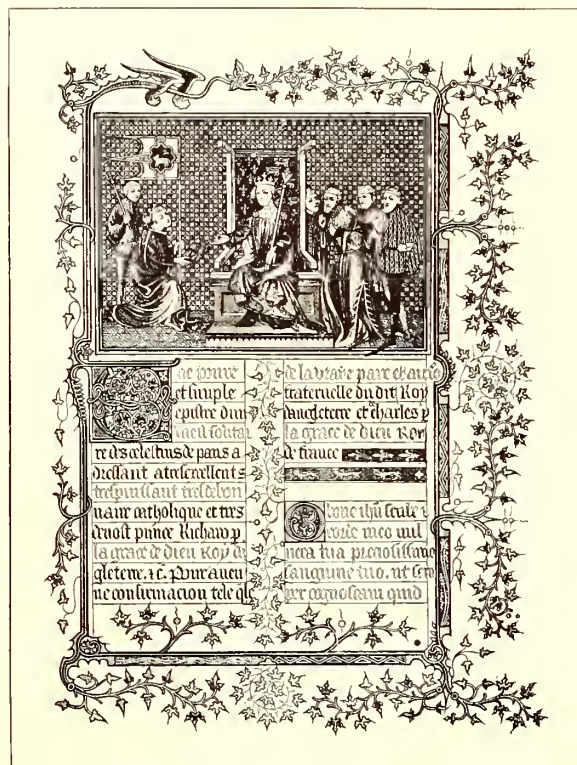 Une povre
et simple
epistre dun
vieil solitai
re des celestins de paris a
dressant a tresexcellent
trespuissant tresdebon
naire catholique et tres
devost prince Richart p
la grace de dieu Roy
gleterre. ⁊c̄. Pour aucu
ne confirmacion tele qle
de la vraye paix et
fraternelle du dit Roy
dangleterre et charles p
la grace de dieu Roy
de france
O bone ihū
corde meo vul
nera tua preciosissimo
sanguine tuo. ut
cognoscam quid